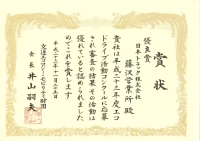 賞状
優良賞
日本トラック株式会社
藤沢営業所 殿
貴社は平成二十三年度エコ
ドライブ活動コンクールに応募
され審査の結果その活動は
優れていると認められました
のでこれを賞します
平成二十三年十一月二十六日
交通エコロジー・モビリティ財団
会長 井山嗣夫